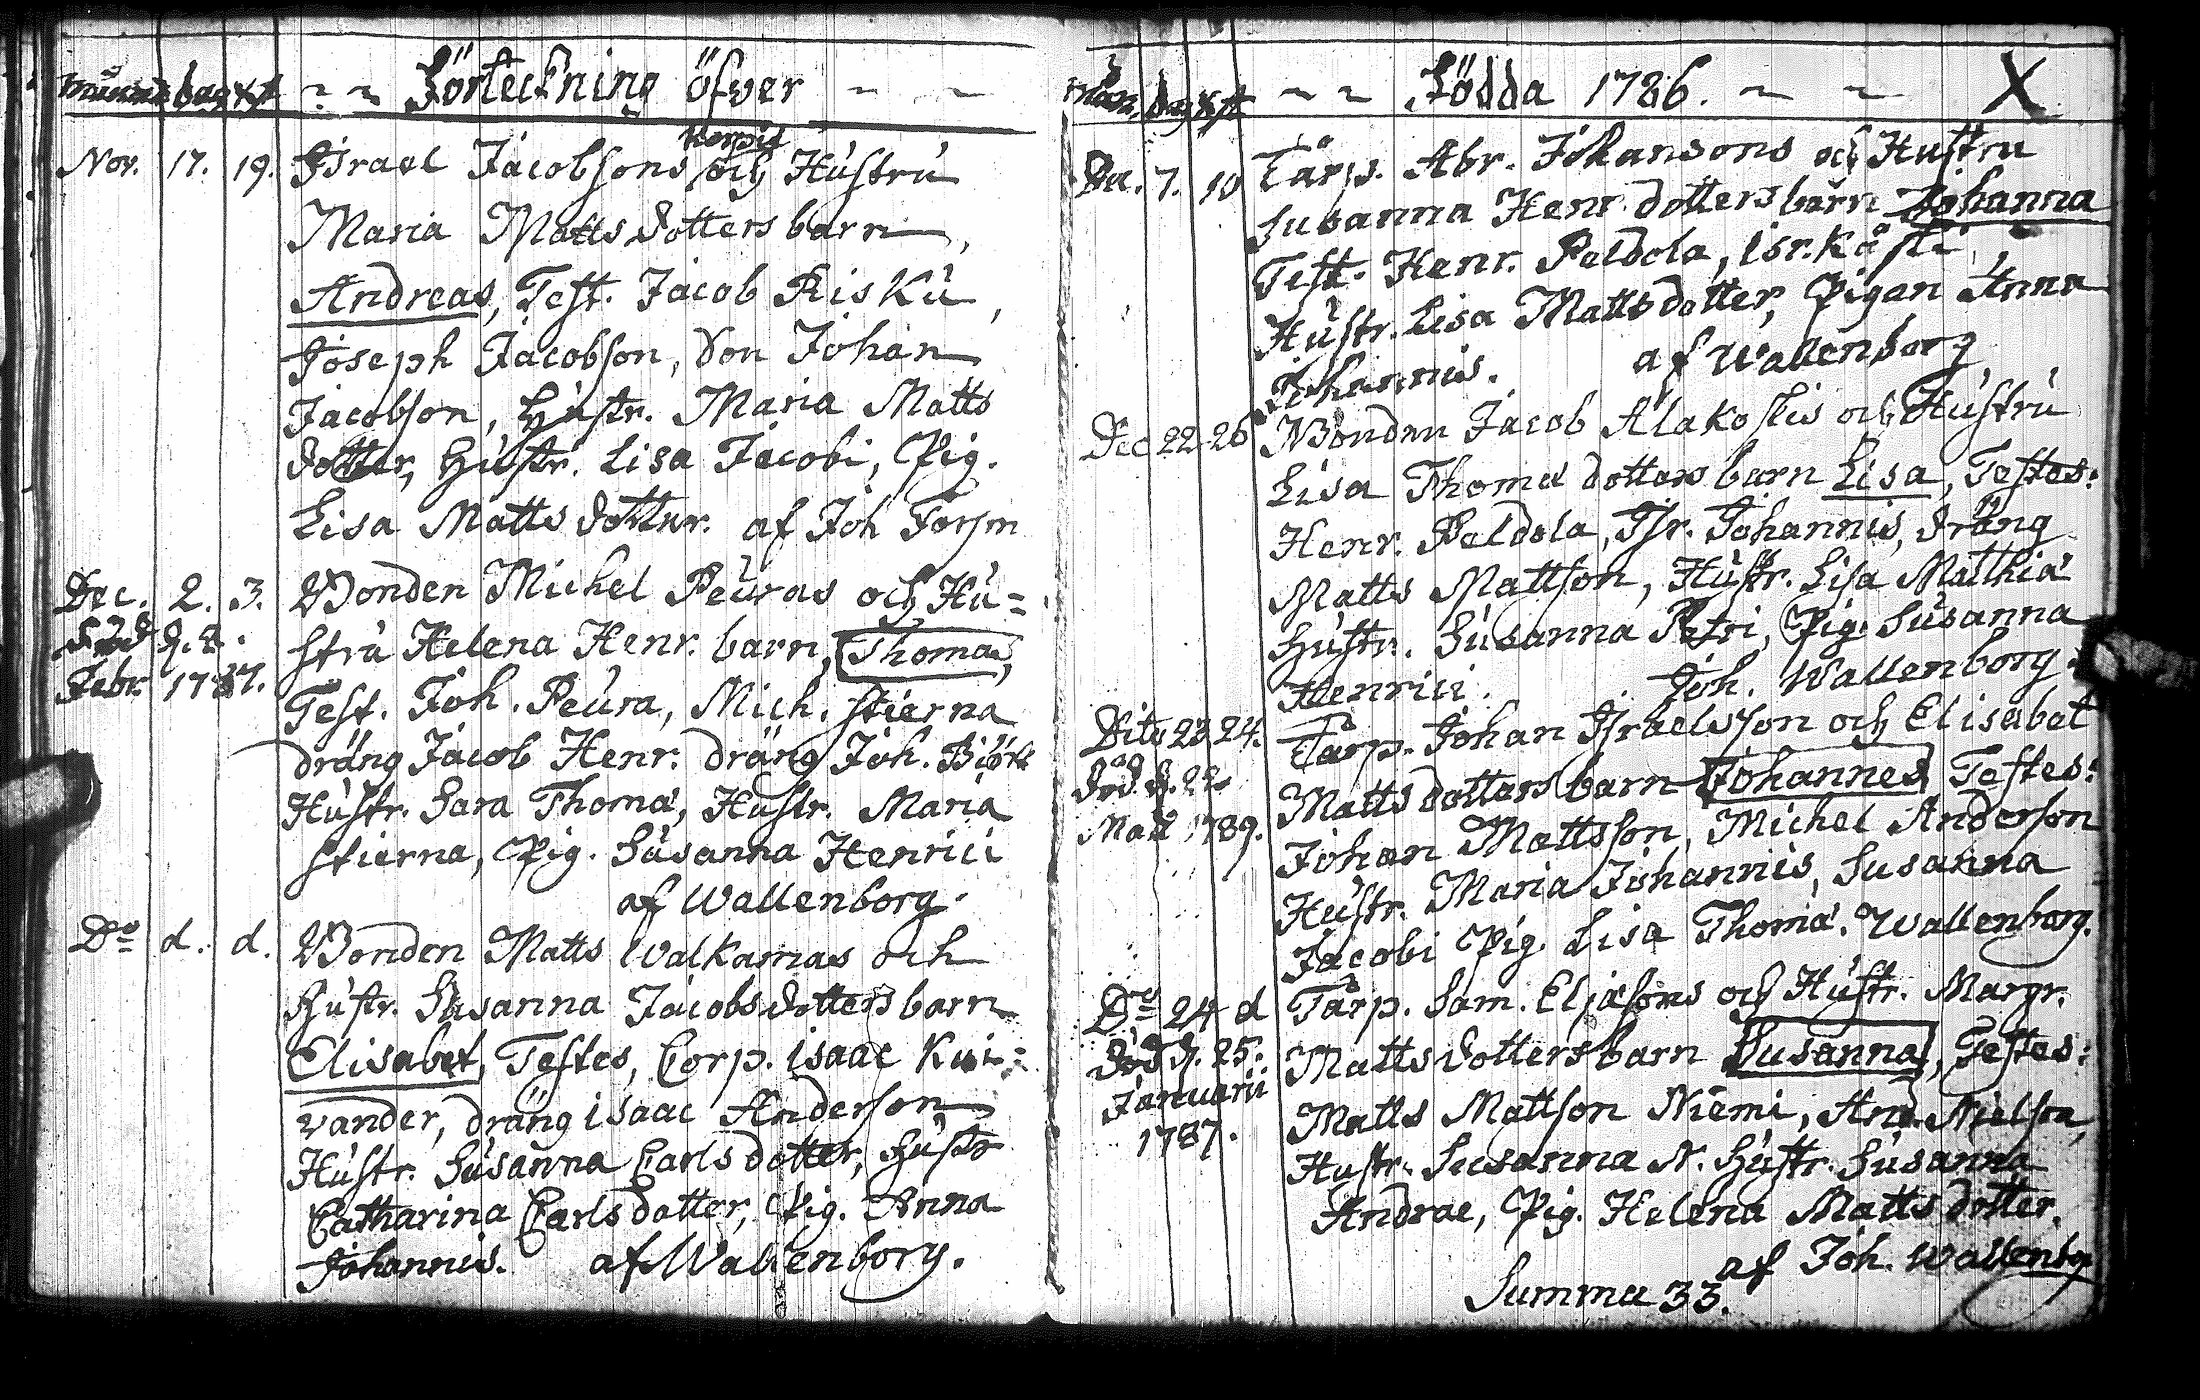 månad dag Xst ~ ~ Förteckning öfver ~ ~
Korpis
Nov. 17. 19. Israel Jacobsons och Hustru
Maria Matts dotters barn,
Andreas, Test. Jacob Risku,
Joseph Jacobson, Son Johan
Jacobson, Hustr. Maria Matts
dotter, Hustr. Lisa Jacobi, Pig.
Lisa Matts dotter. af Joh Forsm
Dec. 2. 3. Bonden Michel Peuras och Hu=
Död d. 8. stru Helena Henr. barn, Thomas,
Febr. 1787.
Test. Joh. Peura, Mich. Stierna
dräng Jacob Henr. dräng Joh. Biörk
Hustr. Sara Thomæ, Hustr. Maria
Stierna, Pig. Susanna Henrici
af Wallenborg.
Do d. d. Bonden Matts Walkamas och
Hustr. Susanna Jacobs dotters barn
Elisabet, Testes, Corp. Isaac Kui=
vander, dräng isaac Anderson
Hustr. Susanna Carls dotter, Hustr
Catharina Carls dotter, Pig. Anna
Johannis. af Wallenborg.
Mån. dag Xst ~ ~ Födda 1786. ~ ~ X
Dec. 7. 10 Tårp. Abr. Johansons och Hustru
Susanna Henr. dotters barn Johanna
Test. Henr. Peldola, isr. Käski,
Hustr. Lisa Matts dotter, Pigan Anna
Johannis. af Wallenborg
Dec 22 26 Bonden Jacob Alakoskis och Hustru
Lisa Thomæ dotters barn Lisa, Testes:
Henr. Peldola, Isr. Johannis, dräng
Matts Mattson, Hustr. Lisa Mathiæ
Hustr. Susanna Petri, Pig. Susanna
Henrici. Joh. Wallenborg.
Dito 23 24. Tårp. Johan Israelsson och Elisabet
Död d. 22 Matts dotters barn Johannes Testes:
Maii 1789. Johan Mattsson, Michel Anderson
Hustr. Maria Johannis, Susanna
Jacobi Pig. Lisa Thomæ. Wallenborg.
Do 24 d Tårp. Sam. Eljasons och Hustr. Margr.
Död d. 25. Matts dotters barn Susanna, Testes:
Januarii
1787. Matts Mattson Niemi, And. Nielson,
Hustr. Susanna N. Hustr. Susanna
Andrae, Pig. Helena Matts dotter.
af Joh. Wallenbg
Summa 33.